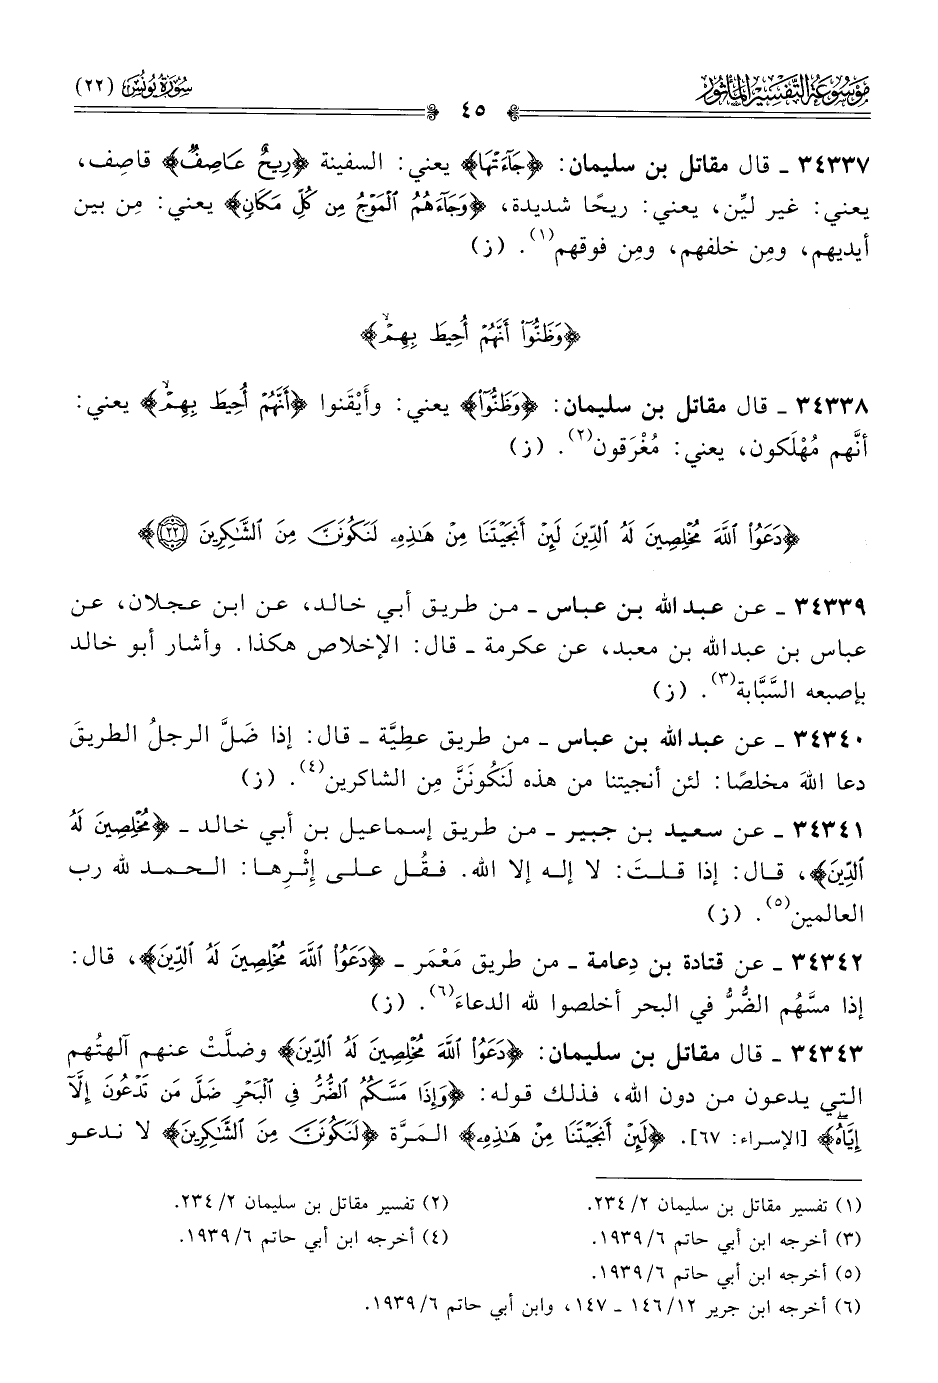 مَوْسُوعَةُ التَّفْسِيرِ المَأْثُور
٤٥
سُورَةُ يُونُسَ (٢٢)
٣٤٣٣٧ ـ قال مقاتل بن سليمان: ﴿جَآءَتْهَا﴾ يعني: السفينة ﴿رِيحٌ عَاصِفٌ﴾ قاصِف،
يعني: غير ليِّن، يعني: ريحًا شديدة، ﴿وَجَآءَهُمُ ٱلْمَوْجُ مِن كُلِّ مَكَانٍ﴾ يعني: مِن بين
أيديهم، ومِن خلفهم، ومِن فوقهم(١). (ز)
﴿وَظَنُّوٓا۟ أَنَّهُمْ أُحِيطَ بِهِمْ ۙ﴾
٣٤٣٣٨ ـ قال مقاتل بن سليمان: ﴿وَظَنُّوٓا۟﴾ يعني: وأَيْقَنوا ﴿أَنَّهُمْ أُحِيطَ بِهِمْ ۙ﴾ يعني:
أنَّهم مُهْلَكون، يعني: مُغْرَقون(٢). (ز)
﴿دَعَوُا۟ ٱللَّهَ مُخْلِصِينَ لَهُ ٱلدِّينَ لَئِنْ أَنجَيْتَنَا مِنْ هَـٰذِهِۦ لَنَكُونَنَّ مِنَ ٱلشَّـٰكِرِينَ ٢٢﴾
٣٤٣٣٩ ـ عن عبد الله بن عباس ـ من طريق أبي خالد، عن ابن عجلان، عن
عباس بن عبد الله بن معبد، عن عكرمة ـ قال: الإخلاص هكذا. وأشار أبو خالد
بإصبعه السَّبَّابة(٣). (ز)
٣٤٣٤٠ ـ عن عبد الله بن عباس ـ من طريق عطِيَّة ـ قال: إذا ضَلَّ الرجلُ الطريقَ
دعا اللهَ مخلصًا: لئن أنجيتنا من هذه لَنَكُونَنَّ مِن الشاكرين(٤). (ز)
٣٤٣٤١ ـ عن سعيد بن جبير ـ من طريق إسماعيل بن أبي خالد ـ ﴿مُخْلِصِينَ لَهُ
ٱلدِّينَ﴾، قال: إذا قلتَ: لا إله إلا الله. فقُل على إِثْرِها: الحمد لله رب
العالمين(٥). (ز)
٣٤٣٤٢ ـ عن قتادة بن دِعامة ـ من طريق مَعْمَر ـ ﴿دَعَوُا۟ ٱللَّهَ مُخْلِصِينَ لَهُ ٱلدِّينَ﴾، قال:
إذا مسَّهُم الضُّرُّ في البحر أخلصوا لله الدعاءَ(٦). (ز)
٣٤٣٤٣ ـ قال مقاتل بن سليمان: ﴿دَعَوُا۟ ٱللَّهَ مُخْلِصِينَ لَهُ ٱلدِّينَ﴾ وضلَّتْ عنهم آلهتُهم
التي يدعون من دون الله، فذلك قوله: ﴿وَإِذَا مَسَّكُمُ ٱلضُّرُّ فِى ٱلْبَحْرِ ضَلَّ مَن تَدْعُونَ إِلَّآ
إِيَّاهُ ۖ﴾ [الإسراء: ٦٧]. ﴿لَئِنْ أَنجَيْتَنَا مِنْ هَـٰذِهِۦ﴾ المَرَّة ﴿لَنَكُونَنَّ مِنَ ٱلشَّـٰكِرِينَ﴾ لا ندعو
(١) تفسير مقاتل بن سليمان ٢/ ٢٣٤.
(٢) تفسير مقاتل بن سليمان ٢/ ٢٣٤.
(٣) أخرجه ابن أبي حاتم ٦/ ١٩٣٩.
(٤) أخرجه ابن أبي حاتم ٦/ ١٩٣٩.
(٥) أخرجه ابن أبي حاتم ٦/ ١٩٣٩.
(٦) أخرجه ابن جرير ١٢/ ١٤٦ ـ ١٤٧، وابن أبي حاتم ٦/ ١٩٣٩.